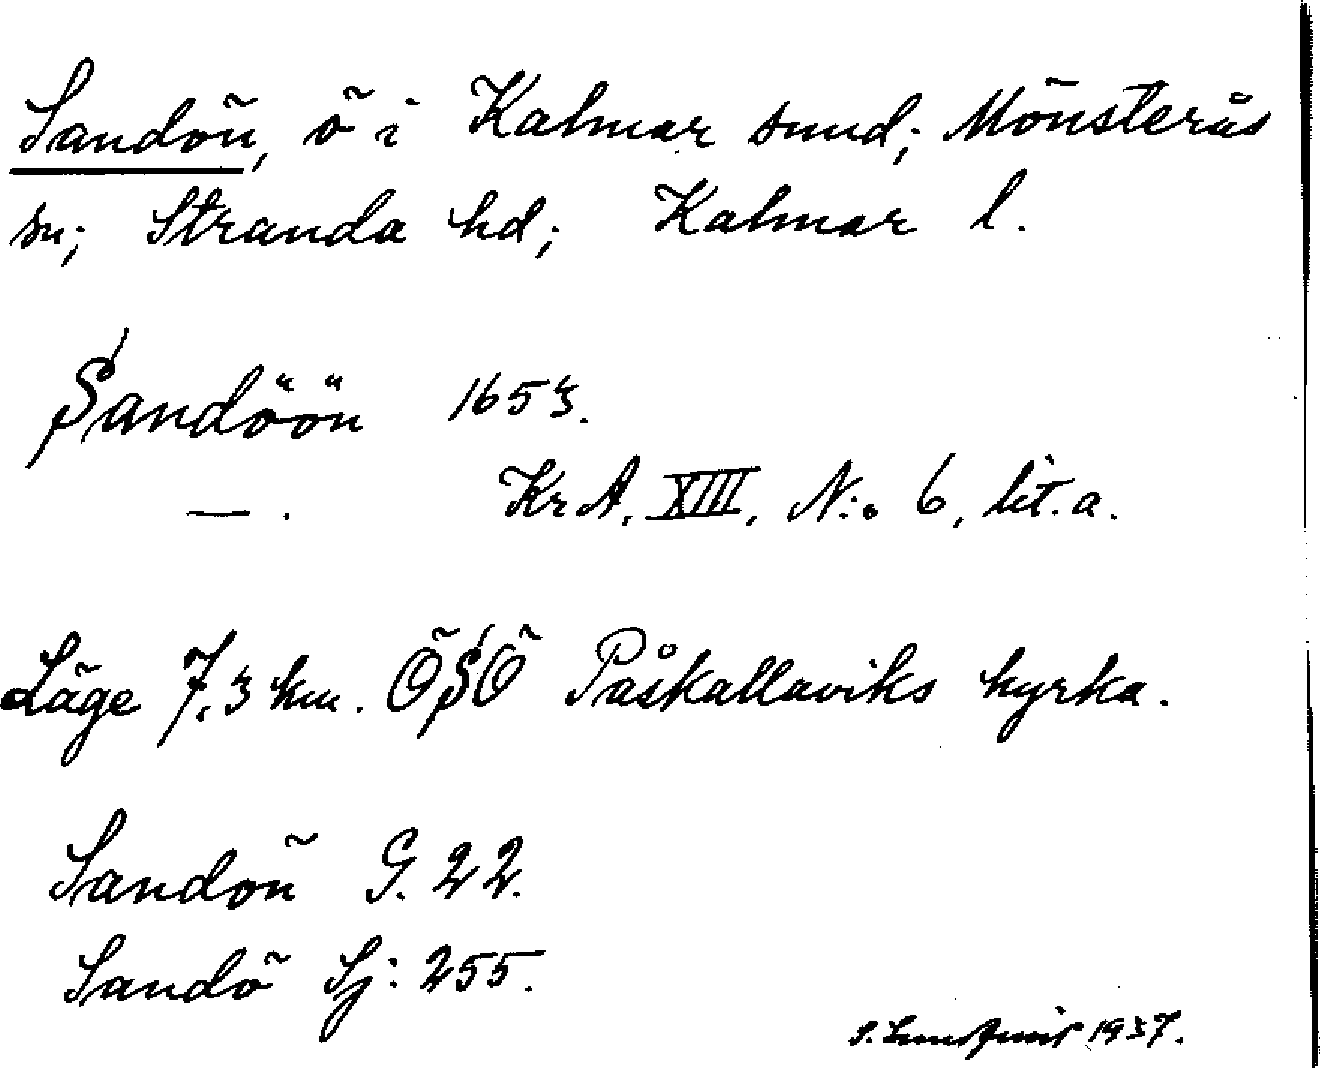 Sandön, ö i Kalmar sund; Mönsterås
sn; Stranda hd; Kalmar l.
Sandöön 1653.
— . KrA, XIII, N:o 6, lit. a.
Läge 7,3 km. ÖSÖ Påskallaviks kyrka.
Sandön G. 22.
Sandö Sj: 255.
1937.